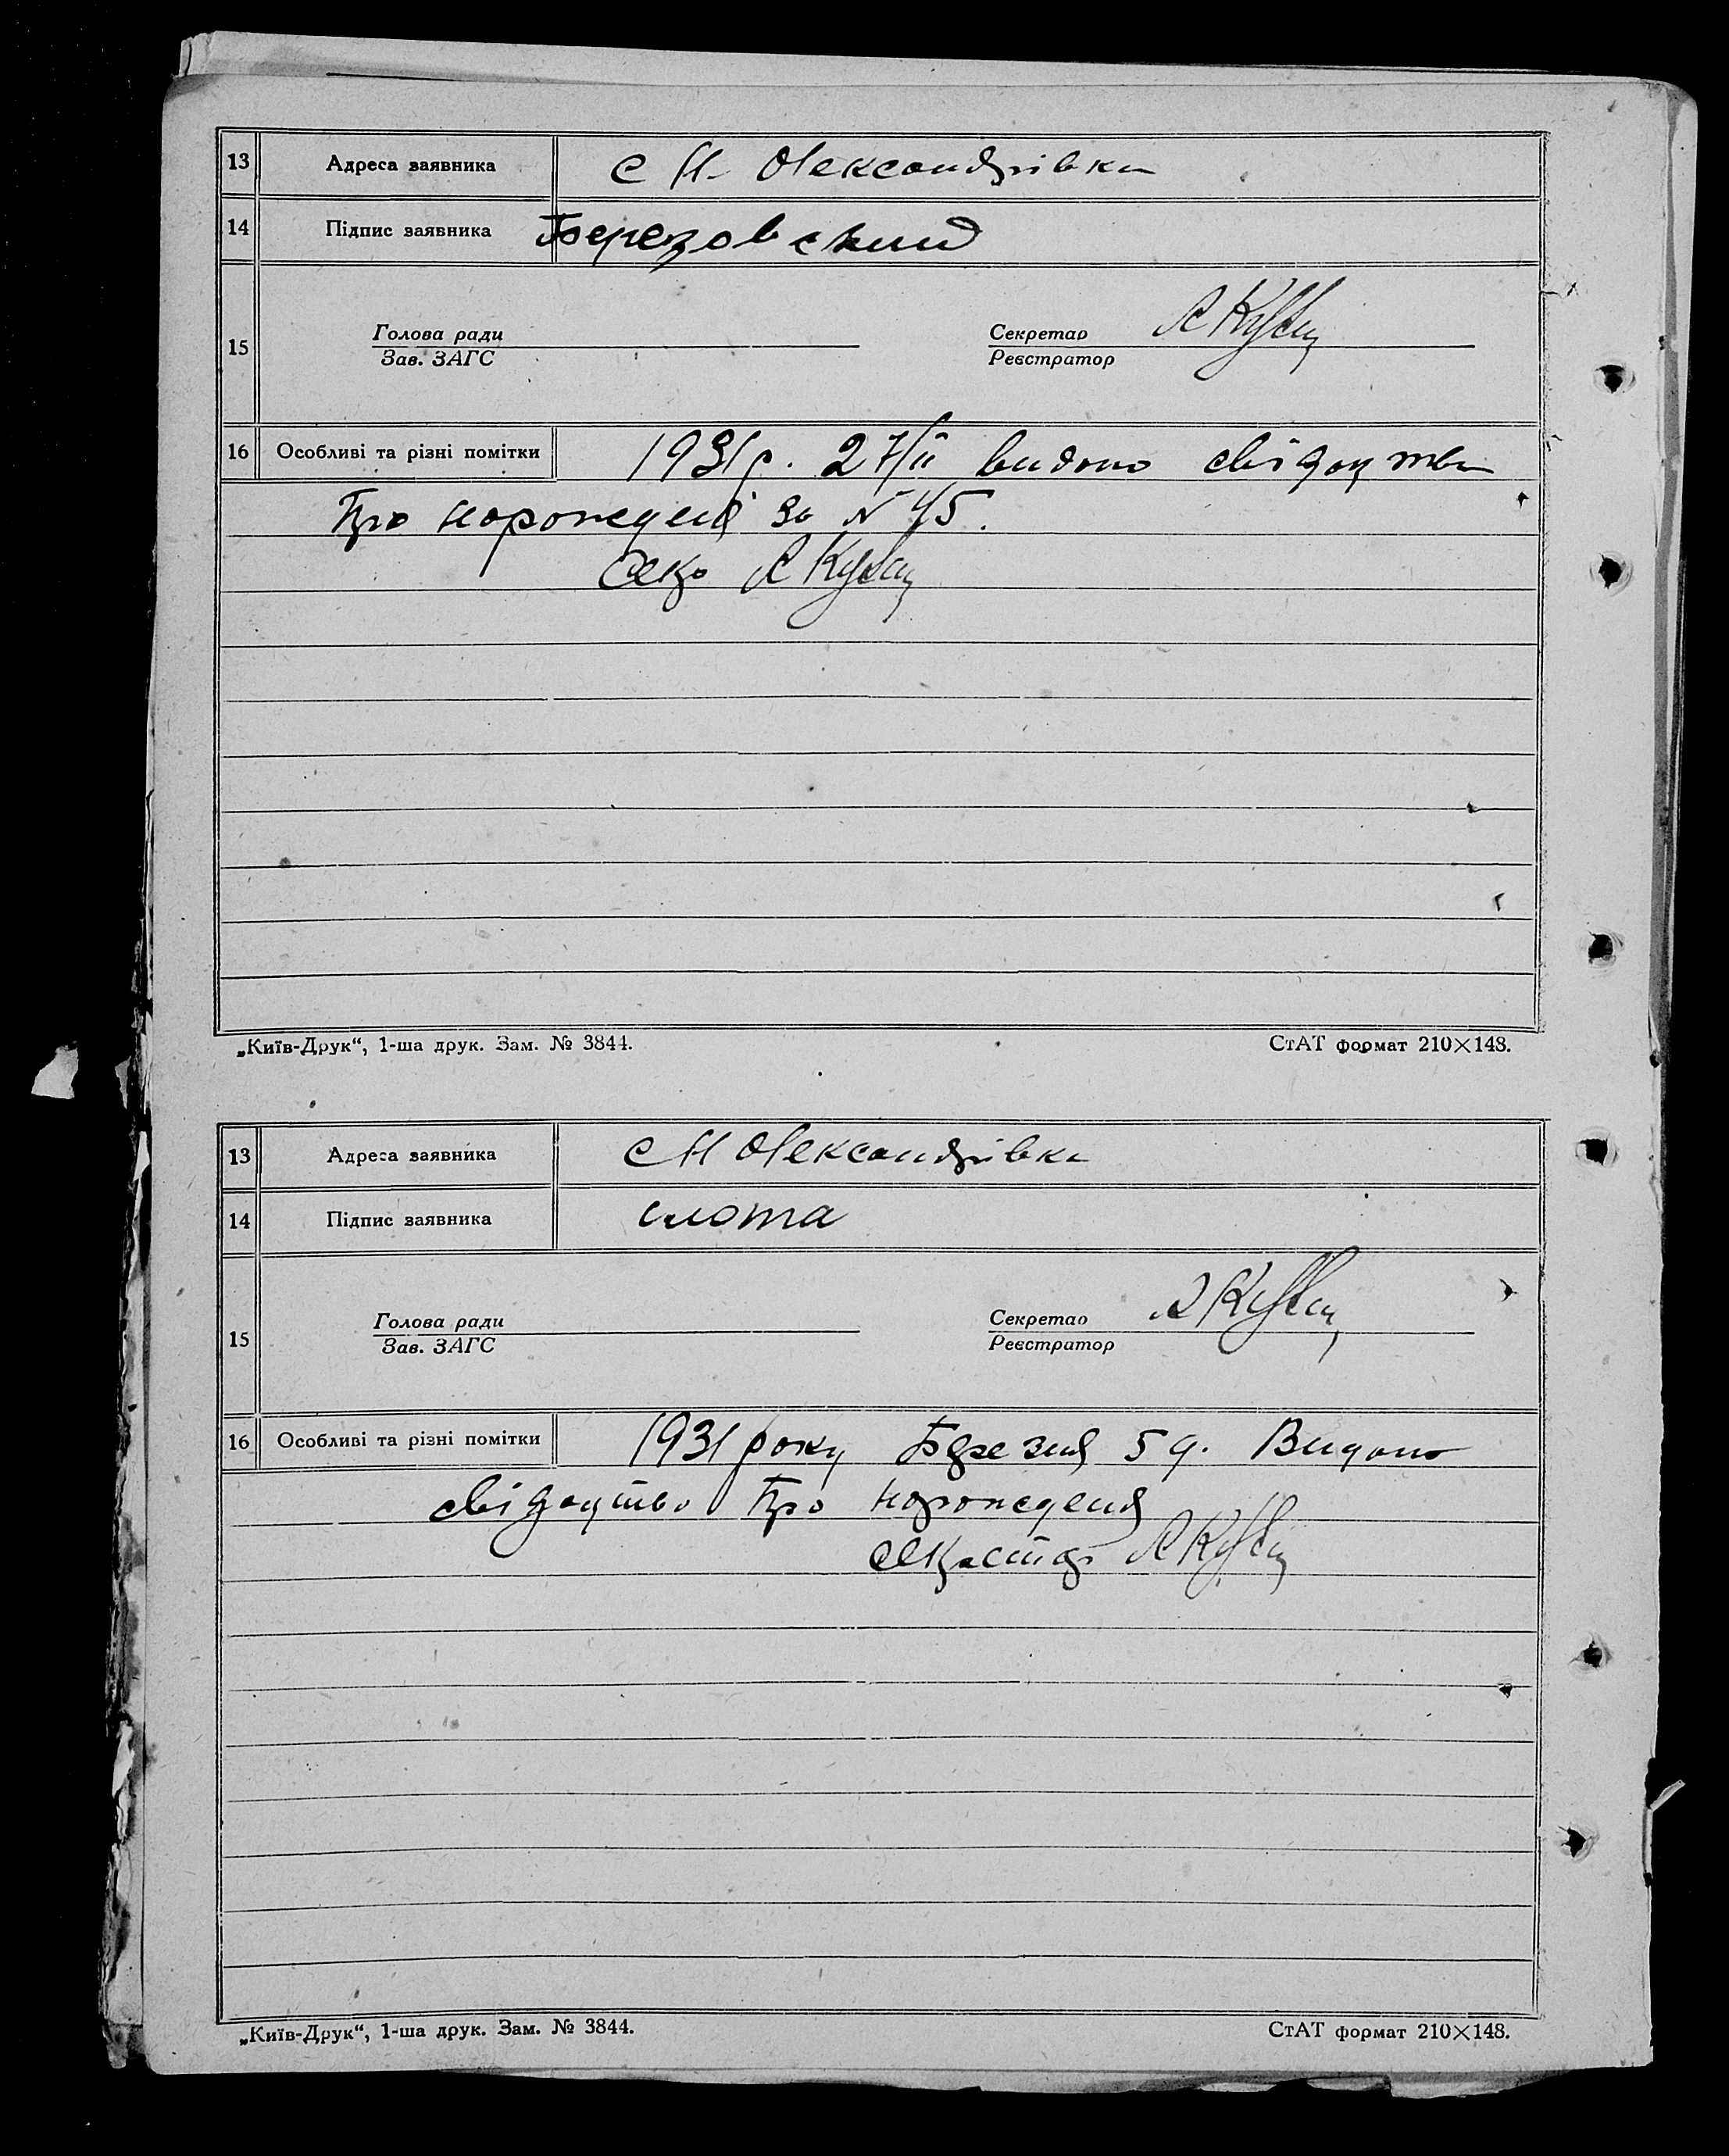 13 Адреса заявника с М. Олександрівка
14 Підпис заявника Березовский
15 Голова ради Секретар
Зав. ЗАГС Реєстратор
16 Особливі та різні помітки 1931 р. 27/ІІ видано свідоцтво
Про народженя за № 45.
Секр
„Київ-Друк“, 1-ша друк. Зам. № 3844. СтАТ формат 210×148.
13 Адреса заявника с М Олександрівка
14 Підпис заявника слота
15 Голова ради Секретар
Зав. ЗАГС Реєстратор
16 Особливі та різні помітки 1931 року Березня 5 д. Видано
свідоцтво Про народженя
„Київ-Друк“, 1-ша друк. Зам. № 3844. СтАТ формат 210×148.